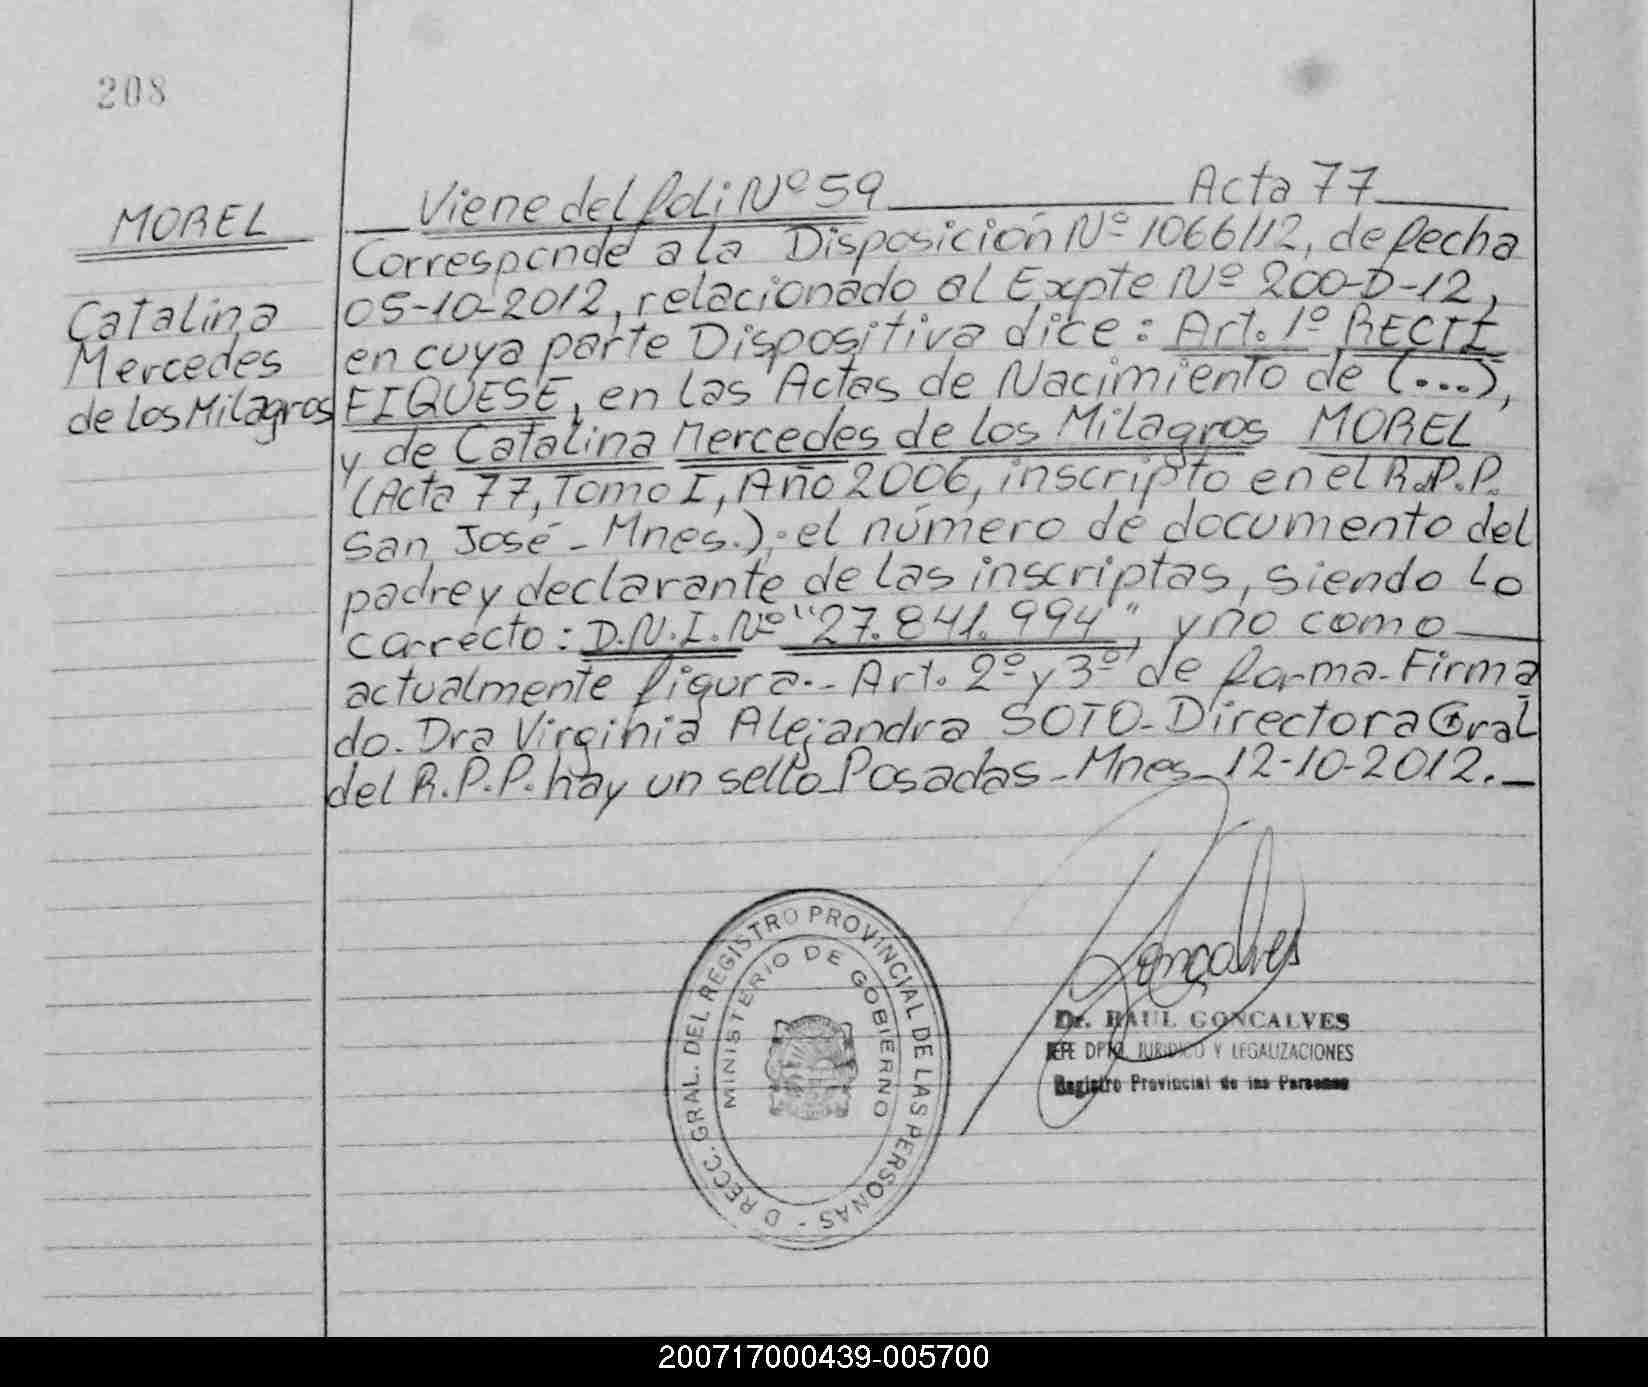 208
MOREL
Catalina
Mercedes
de los Milagros
Viene del foli Nº 59 Acta 77
Corresponde a la Disposición Nº 1066/12, de fecha
05-10-2012, relacionado al Expte Nº 200-D-12,
en cuya parte Dispositiva dice: Art. 1º RECTI
FIQUESE, en las Actas de Nacimiento de (...),
y de Catalina Mercedes de los Milagros MOREL
(Acta 77, Tomo I, Año 2006, inscripto en el R.P.P.
San José - Mnes.); el número de documento del
padre y declarante de las inscriptas, siendo lo
correcto: D.N.I. Nº "27.841.994", y no como
actualmente figura.- Art. 2º y 3º de forma. Firma
do. Dra Virginia Alejandra SOTO - Directora Gral
del R.P.P. hay un sello Posadas - Mnes - 12-10-2012.-
DRECC. GRAL. DEL REGISTRO PROVINCIAL DE LAS PERSONAS -
MINISTERIO DE GOBIERNO
Gonçalves
Dr. RAUL GONCALVES
JEFE DPTO JURIDICO Y LEGALIZACIONES
Registro Provincial de las Personas
200717000439-005700